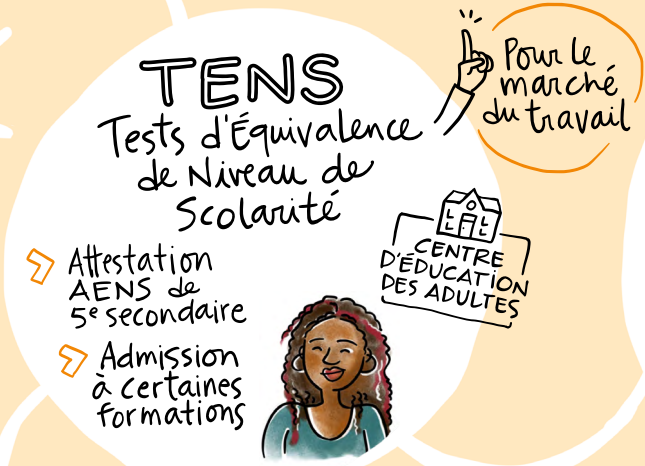 TENS
Tests d'Équivalence
de Niveau de
Scolarité
Pour le
marché
du travail
CENTRE
D'ÉDUCATION
DES ADULTES
Attestation
AENS de
5e secondaire
Admission
à certaines
formations